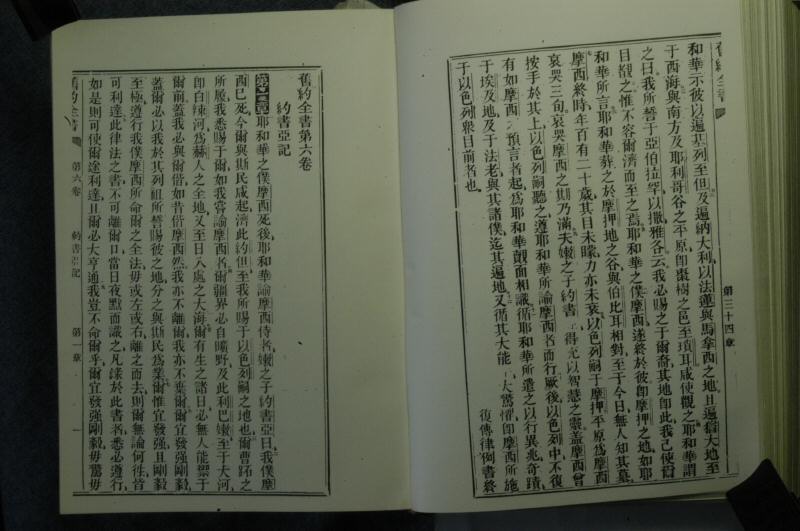 舊約全書
第三十四章
和華示彼以遍基列至但及遍納大利以法蓮與馬拿西之地且遍猶大地至
于西海與南方及耶利哥谷之平原卽棗樹之邑至瑣耳咸使觀之耶和華謂
之曰我所誓于亞伯拉罕以撒雅各云我必賜之于爾裔其地卽此我已使爾
目覩之惟不容爾濟而至之焉耶和華之僕摩西遂終於彼卽摩押之地如耶
和華所言耶和華葬之於摩押地之谷與伯比耳相對至于今日無人知其墓
摩西終時年百有二十歲其目未矇力亦未衰以色列嗣于摩押平原為摩西
哀哭三旬哀哭摩西之期乃滿嫩之子約書得充以智慧之靈蓋摩西曾
按手於其上以色列嗣聽之遵耶和華所諭摩西者而行厥後以色列中不復
有如摩西之預言者起為耶和華覿面相識循耶和華所遣之以行異兆奇蹟
于埃及地及于法老與其諸僕迄其遍地又循其大能大驚懼卽摩西所施
于以色列衆目前者也
復傳律例書終
舊約全書第六卷
約書亞記
第一章耶和華之僕摩西死後耶和華諭摩西侍者嫩之子約書亞曰我僕摩
西已死今爾與斯民咸起濟此約但至我所賜于以色列嗣之地也爾曹跖之
所履我悉賜于爾如我嘗諭摩西者爾疆界必自曠野及此利巴嫩至于大河
卽白辣河為赫人之全地又至日入處之大海爾有生之諸日必無人能禦于
爾前蓋我必與爾偕如昔偕摩西然我亦不離爾我亦不棄爾爾宜發强剛毅
蓋爾必以我於其列祖所誓賜彼之地分之與斯民為業爾惟宜發强且剛毅
至極遵行我僕摩西所命爾之全法毋或左或右離之而去則爾無論何往皆
可利達此律法之書不可離爾口當日夜默而識之凡錄於此書者悉必遵行
如是則可使爾途利達且爾必大亨通我豈不命爾乎爾宜發强剛毅毋驚毋
舊約全書
第六卷
約書亞記
第一章
一